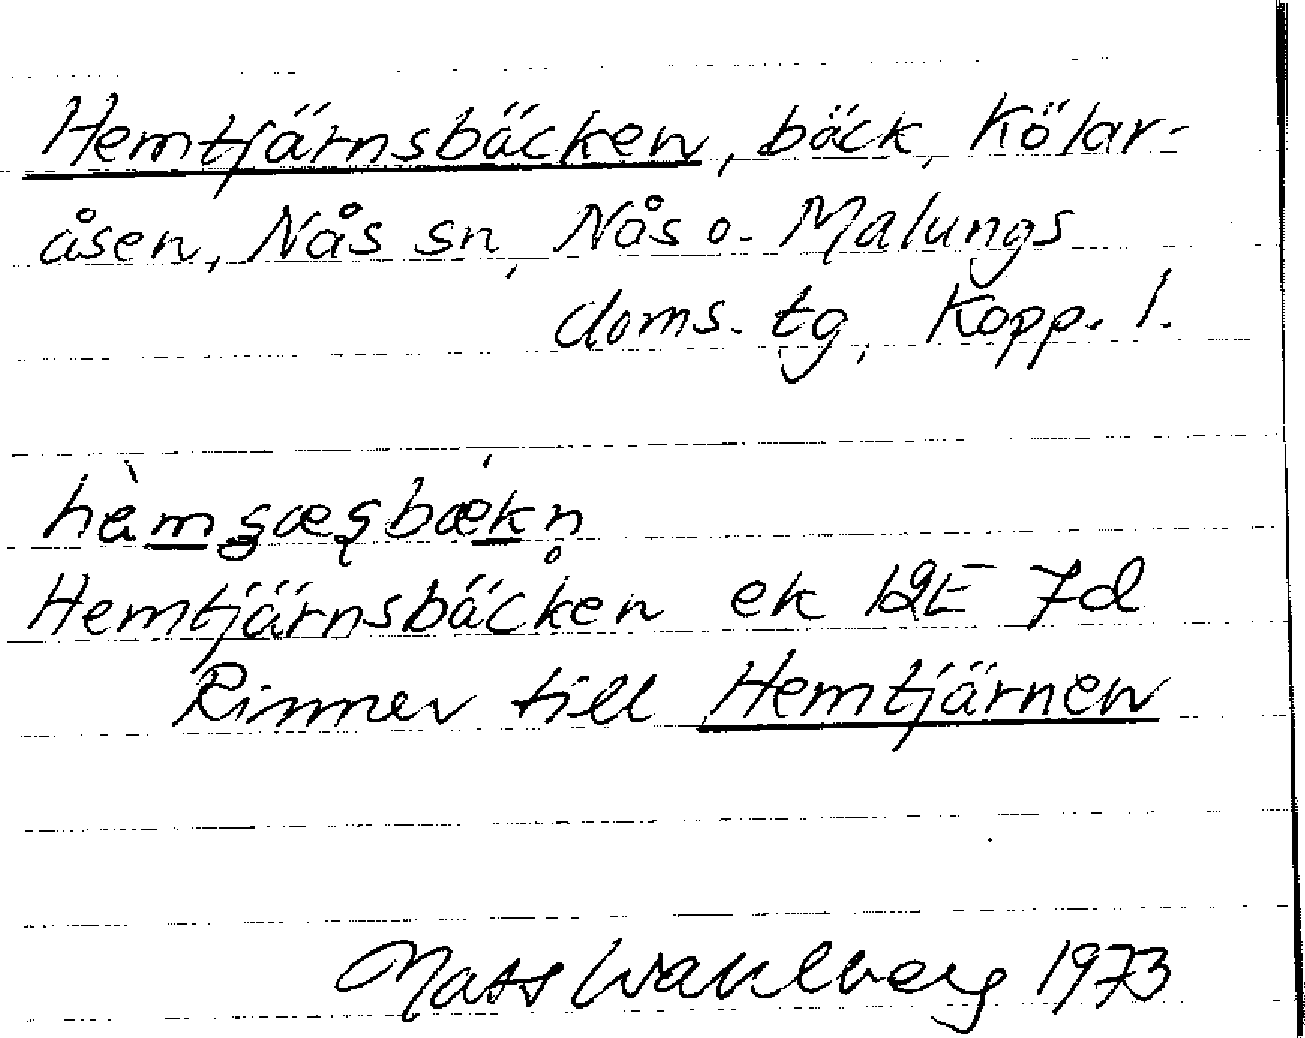 Hemtjärnsbäcken, bäck, Kölar-
åsen, Nås sn, Nås o. Malungs
doms. tg, Kopp. l.
hèmʂæʂbækn̥
Hemtjärnsbäcken ek 12E 7d
Rinner till Hemtjärnen
Mats Wahlberg 1973